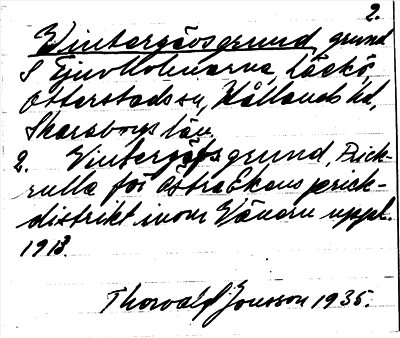 2.
Vintergåsgrund, grund
S Tjuvholmarna, Läckö,
Otterstads sn, Kållands hd,
Skaraborgs län.
2. Vintergåsgrund, Prick-
rulla för Östra Ekens prick-
distrikt inom Vänern uppl.
1913.
Thorvald Jonsson 1935.